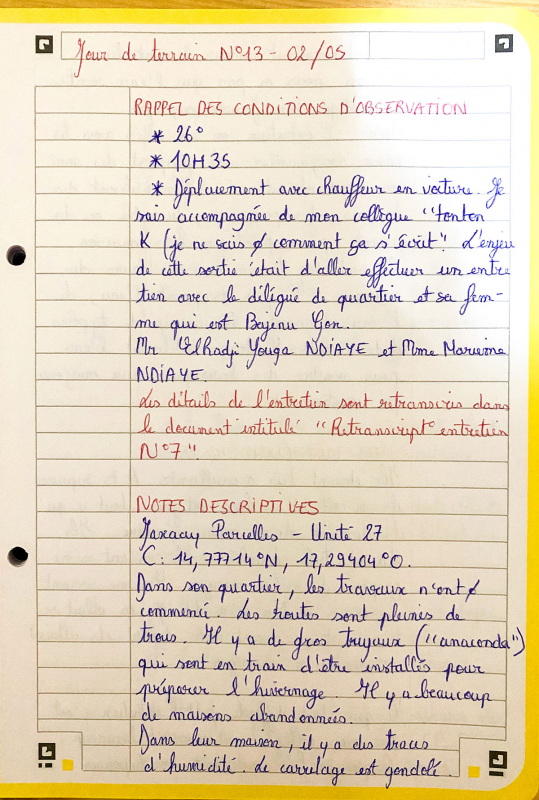 Jour de terrain N°13 - 02/05
RAPPEL DES CONDITIONS D'OBSERVATION
* 26°
* 10H35
* Déplacement avec chauffeur en voiture. Je
suis accompagnée de mon collègue "tonton
K (je ne sais ∅ comment ça s'écrit". L'enjeu
de cette sortie était d'aller effectuer un entre
tien avec le délégué de quartier et sa fem-
me qui est Bajenu Gox.
Mr ElHadji Youga NDIAYE et Mme
NDIAYE.
Les détails de l'entretien sont retranscris dans
le document intitulé "Retranscript° entretien
N°7".
NOTES DESCRIPTIVES
Jaxaay Parcelles - Unité 27
C: 14,77714°N, 17,29404°O.
Dans son quartier, les travaux n'ont ∅
commencé. Les routes sont pleines de
trous. Il y a de gros tuyaux ("anaconda")
qui sont en train d'être installés pour
préparer l'hivernage. Il y a beaucoup
de maisons abandonnées.
Dans leur maison, il y a des traces
d'humidité. Le carrelage est gondolé.